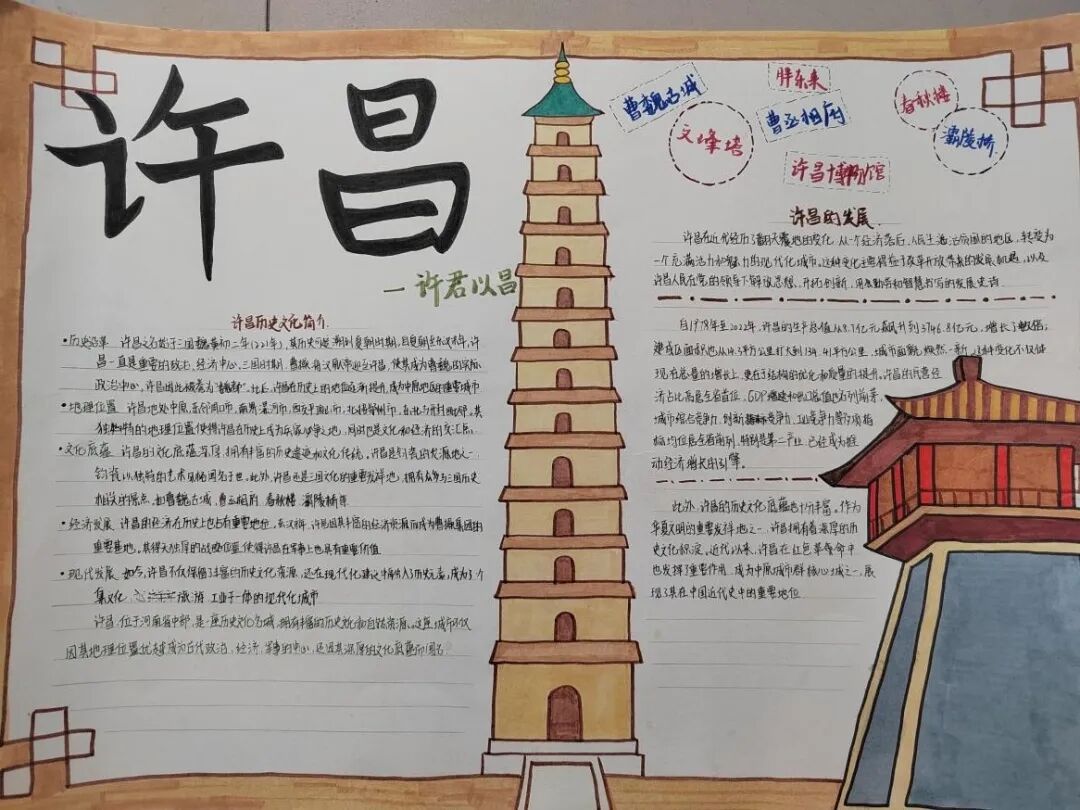 许昌
一许君以昌
曹魏古城
胖东来
文峰塔
曹丞相府
春秋楼
灞陵桥
许昌博物馆
许昌历史文化简介.
·历史沿革 许昌之名始于三国魏黄初二年(221年),其历史可追溯到夏朝时期,自夏朝至秦汉年,许
昌一直是重要的政治、经济中心,三国时期,曹操将汉献帝迎至许昌,使其成为曹魏的实际
政治中心,许昌因此被誉为"魏都".此后,许昌在历史上的地位逐渐提升,成为中原地区的重要城市
·地理位置 许昌地处中原,东邻周口市,南界漯河市,西交平顶山市,北接郑州市,东北与开封毗邻。其
独特的地理位置使得许昌在历史上成为兵家必争之地,同时也是文化和经济的交汇点.
·文化底蕴 许昌的文化底蕴深厚,拥有丰富的历史遗迹和文化传统。许昌是钧瓷的发源地之一,
钧瓷以独特的艺术风格闻名于世。此外,许昌还是三国文化的重要发祥地,拥有众多与三国历史
相关的景点,如曹魏古城,曹丞相府,春秋楼 灞陵桥等
·经济发展、许昌的经济在历史上也占有重要地位。东汉末年,许昌因其丰富的经济资源而成为曹操集团的
重要基地。其得天独厚的战略位置使得许昌在军事上也具有重要价值
·现代发展、如今,许昌不仅保留了丰富的历史文化资源,还在现代化建设中融入了历史元素,成为了个
集文化、旅游、工业于一体的现代化城市
许昌,位于河南省中部,是一座历史文化名城,拥有丰富的历史文化和自然资源。这座城市不仅
因其地理位置优越成为古代政治、经济、军事的中心,还因其深厚的文化底蕴而闻名
许昌的发展
许昌在近代经历了翻天覆地的变化,从一个经济落后、人民生活贫困的地区,转变为
一个充满活力和魅力的现代化城市。这种变化主要得益于改革开放带来的发展机遇,以及
许昌人民在党的领导下解放思想、开拓创新,用勤劳和智慧书写的发展史诗.
自1978年至2022年,许昌的生产总值从8.7亿元飙升到3746.8亿元,增长了数倍;
建成区面积也从14.3平方公里扩大到134.41平方公里,城市面貌焕然一新,这种变化不仅体
现在总量的增长上,更在于结构的优化和质量的提升。许昌的民营经
济占比高居全省首位,GDP增速和总量值也名列前茅,
城市综合竞争力、创新竞争力、工业竞争力等多项指
标均位居全省前列,特别是第二产业已经成为推
动经济增长的引擎。
此外,许昌的历史文化底蕴也十分丰富。作为
华夏文明的重要发祥地之一,许昌拥有着深厚的历
史文化积淀。近代以来,许昌在红色革命中
也发挥了重要作用.成为中原城市群核心城之一,展
现了其在中国近代史中的重要地位